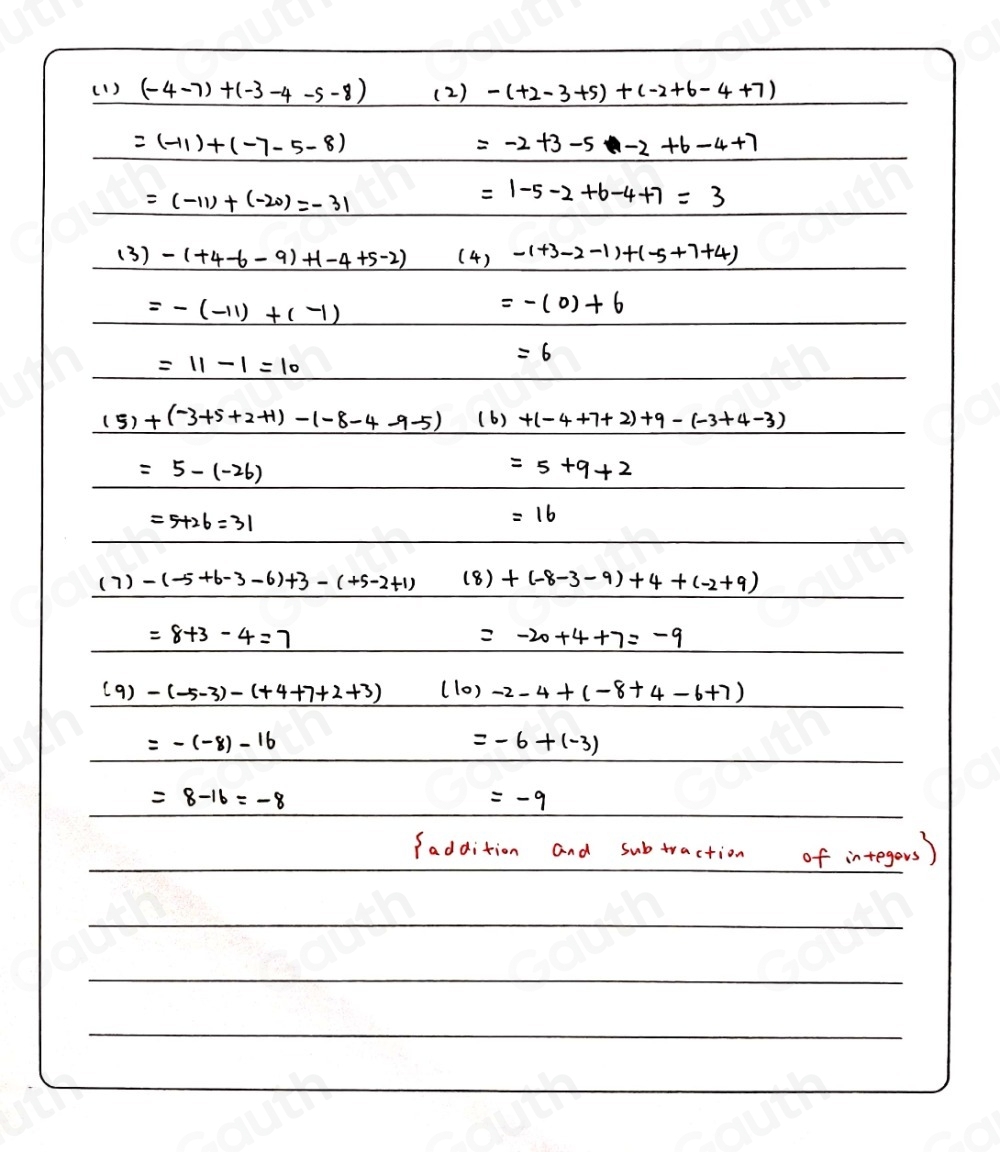 (1) (-4-7)+(-3-4-5-8) (2) -(+2-3+5)+(-2+6-4+7)
=(-11)+(-7-5-8) = -2+3-5 -2+6-4+7
=(-11)+(-20)=-31 = 1-5-2+6-4+7 = 3
(3) -(+4-6-9)+(-4+5-2) (4) -(+3-2-1)+(-5+7+4)
= -(-11)+(-1) = -(0)+6
= 11-1=10 = 6
(5)+(-3+5+2+1)-(-8-4-9-5) (6) +(-4+7+2)+9-(-3+4-3)
= 5-(-26) = 5+9+2
=5+26=31 = 16
(7) -(-5+6-3-6)+3-(+5-2+1) (8) +(-8-3-9)+4+(-2+9)
= 8+3-4=7 = -20+4+7= -9
(9) -(-5-3)-(+4+7+2+3) (10) -2-4+(-8+4-6+7)
= -(-8)-16 = -6+(-3)
= 8-16=-8 = -9
{addition and subtraction of integers}
Gauth